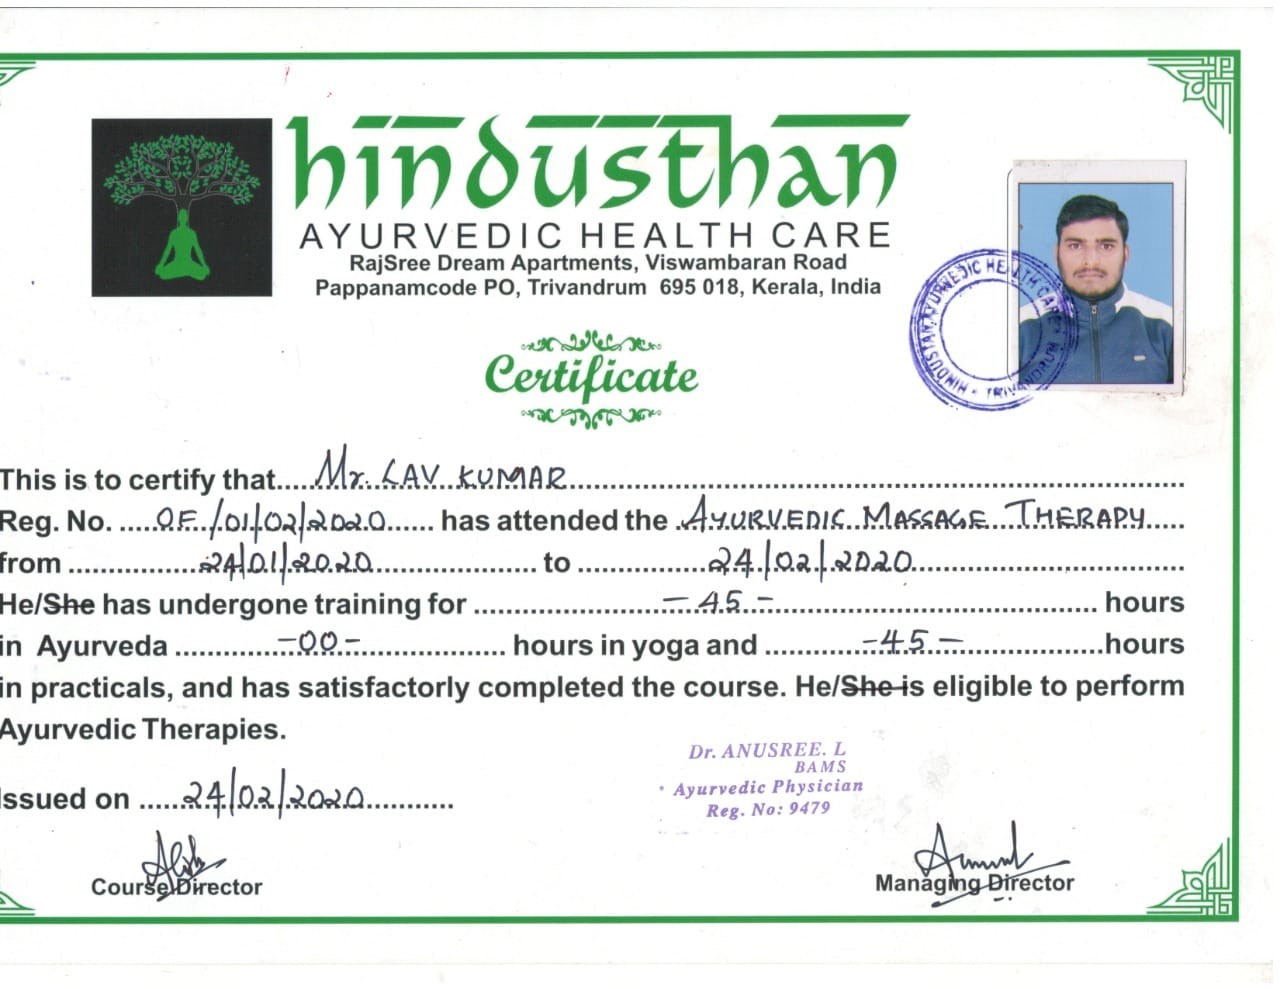 hindusthan
AYURVEDIC HEALTH CARE
RajSree Dream Apartments, Viswambaran Road
Pappanamcode PO, Trivandrum 695 018, Kerala, India
HINDUSTAN AYURVEDIC HEALTH CARE • TRIVANDRUM
Certificate
This is to certify that.....Mr. LAV KUMAR
Reg. No. .....OF/01/02/2020...... has attended the AYURVEDIC MASSAGE THERAPY.....
from ................24/01/2020.................... to ................24/02/2020.............................
He/She has undergone training for ....................... – 45 – ....................................... hours
in Ayurveda .............–00–.................. hours in yoga and .............–45–.................hours
in practicals, and has satisfactorly completed the course. He/She is eligible to perform
Ayurvedic Therapies.
Dr. ANUSREE. L
BAMS
Ayurvedic Physician
Reg. No: 9479
Issued on ......24/02/2020............
Course Director
Managing Director